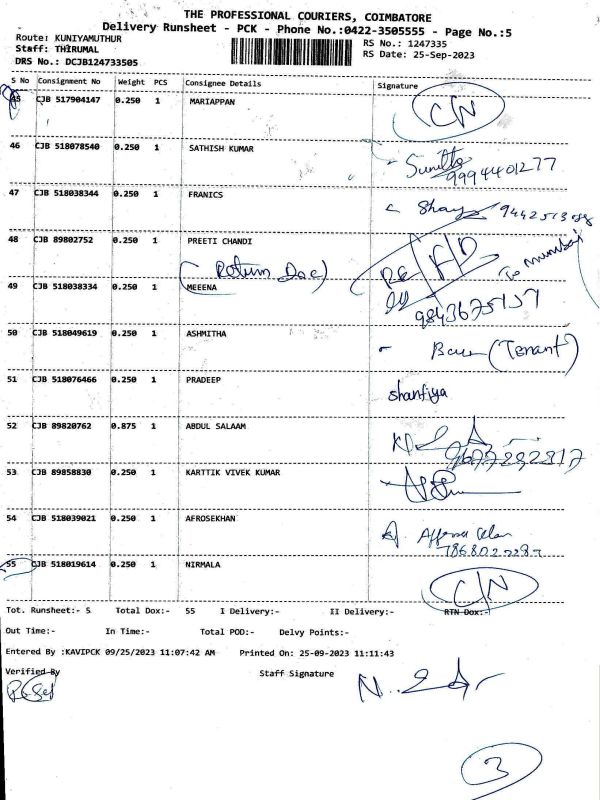 THE PROFESSIONAL COURIERS, COIMBATORE
Delivery Runsheet - PCK - Phone No.:0422-3505555 - Page No.:5
Route: KUNIYAMUTHUR
RS No.: 1247335
Staff: THIRUMAL
RS Date: 25-Sep-2023
DRS No.: DCJB124733505
S No Consignment No Weight PCS Consignee Details Signature
45 CJB 517904147 0.250 1 MARIAPPAN C/N
46 CJB 518078540 0.250 1 SATHISH KUMAR
9994401277
47 CJB 518038344 0.250 1 FRANICS
48 CJB 89802752 0.250 1 PREETI CHANDI
(Return Doc) To mumbai
49 CJB 518038334 0.250 1 MEEENA
50 CJB 518049619 0.250 1 ASHMITHA (Tenant)
51 CJB 518076466 0.250 1 PRADEEP shanfiya
52 CJB 89820762 0.875 1 ABDUL SALAAM
53 CJB 89858830 0.250 1 KARTTIK VIVEK KUMAR
54 CJB 518039021 0.250 1 AFROSEKHAN
55 CJB 518019614 0.250 1 NIRMALA C/N
Tot. Runsheet:- 5 Total Dox:- 55 I Delivery:- II Delivery:- RTN Dox:-
Out Time:- In Time:- Total POD:- Delvy Points:-
Entered By :KAVIPCK 09/25/2023 11:07:42 AM Printed On: 25-09-2023 11:11:43
Verified By Staff Signature
3